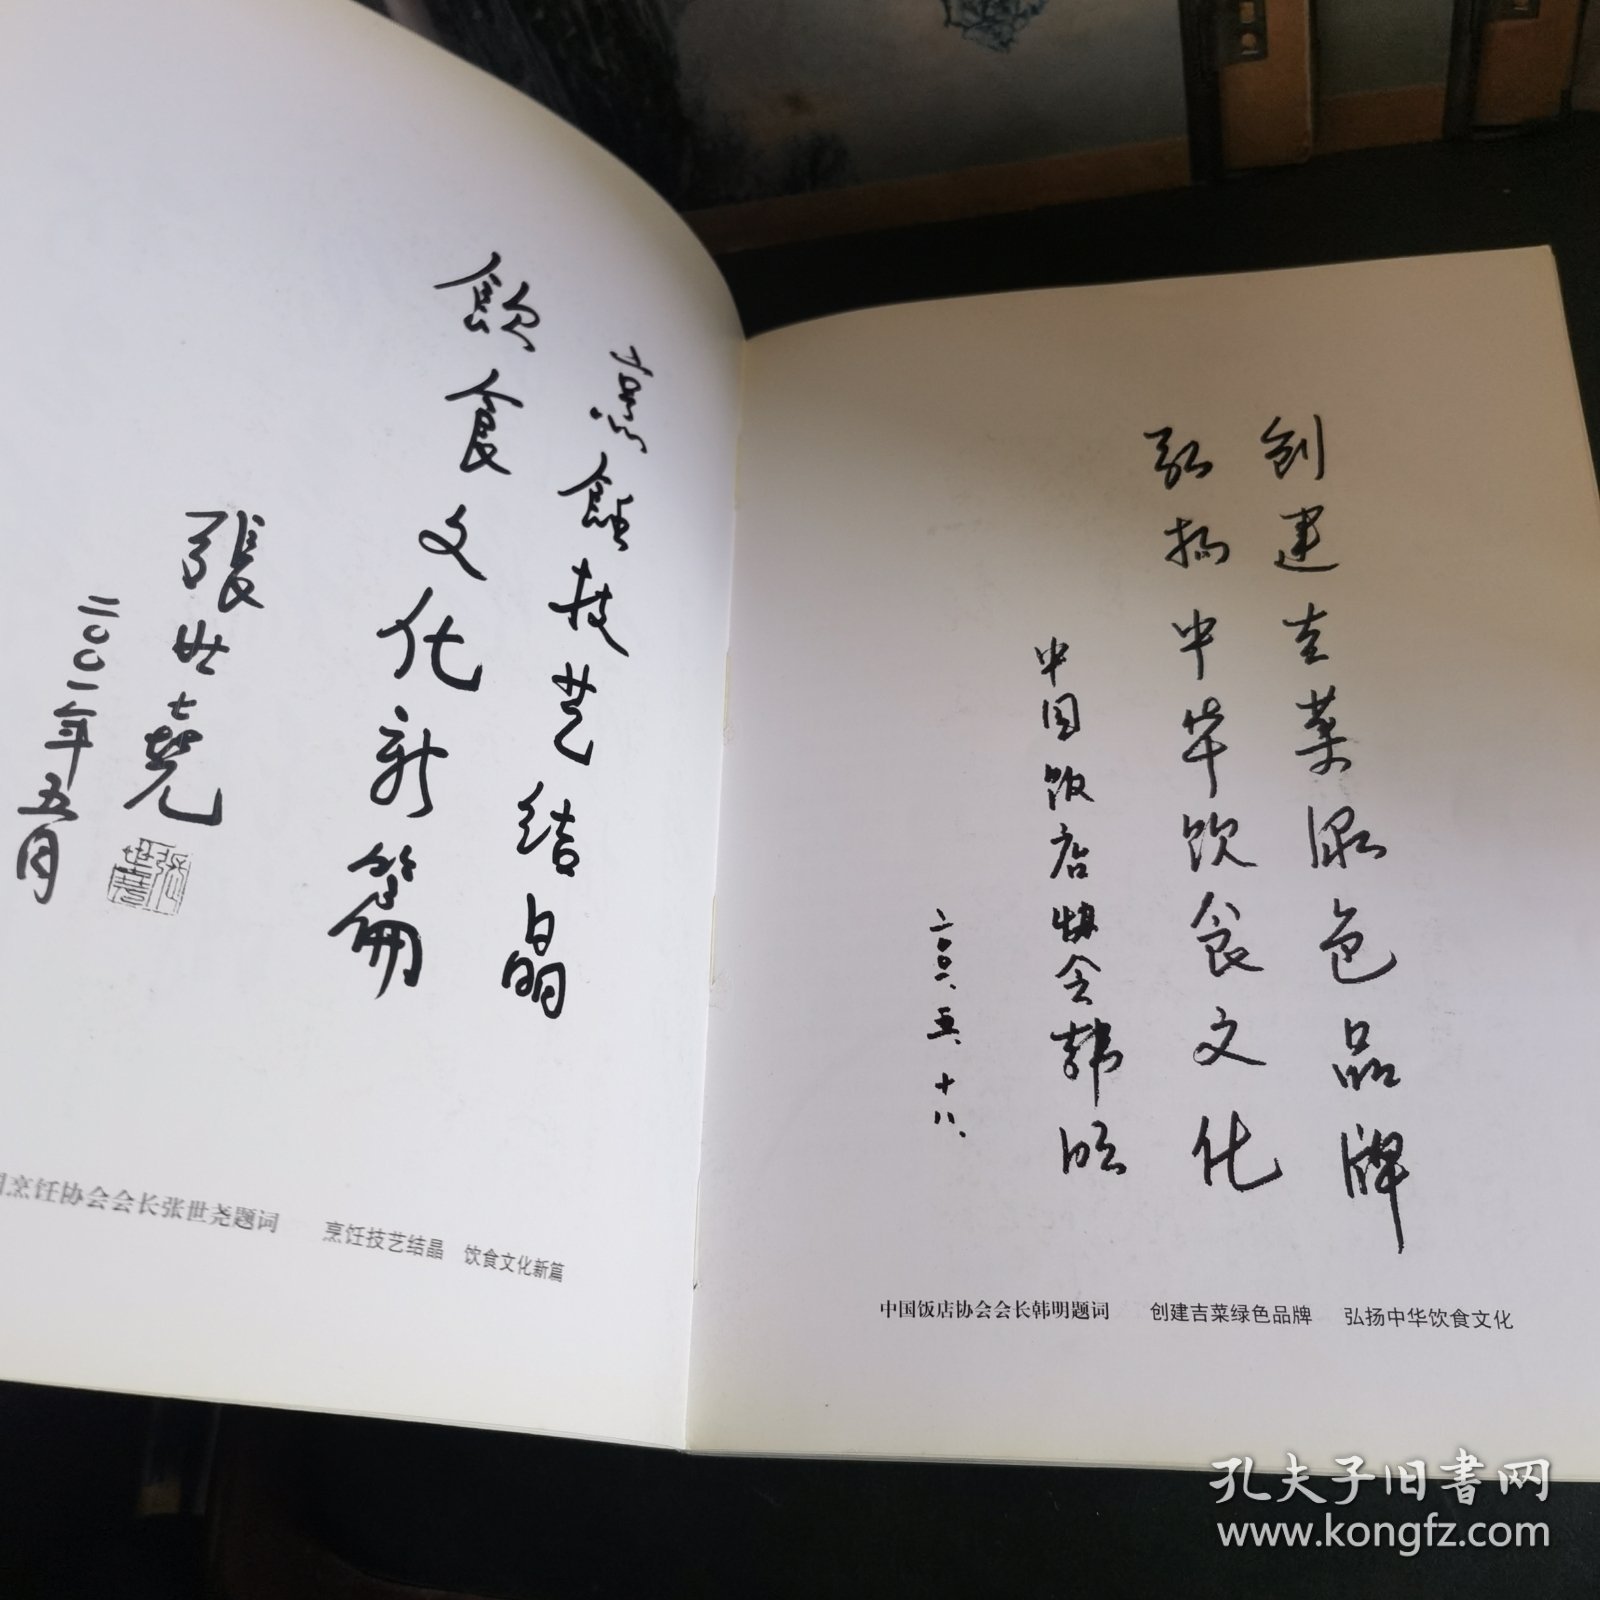 烹飪技艺结晶
飲食文化新篇
張世堯
二〇〇一年五月
张世尧
国烹饪协会会长张世尧题词 烹饪技艺结晶 饮食文化新篇
创建吉菜绿色品牌
弘扬中华饮食文化
中国饭店协会韩明
二〇〇一.五.十八.
中国饭店协会会长韩明题词 创建吉菜绿色品牌 弘扬中华饮食文化
孔夫子旧书网
www.kongfz.com